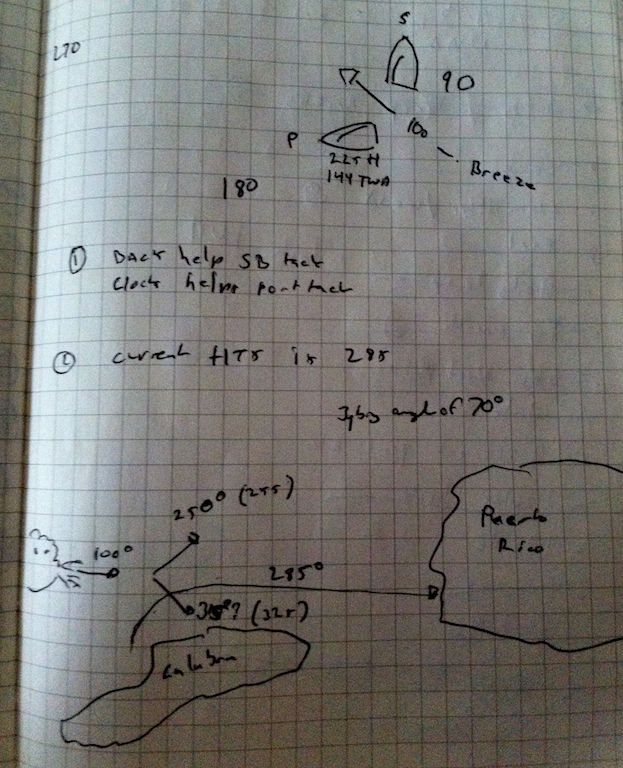 270
S
90
100
P
225 H
144 TWA
Breeze
180
① Back help SB tack
Clock helps port tack
② current HTS is 285
Jybing angle of 70°
250° (255)
100°
285°
(325)
Puerto
Rico
Culebra